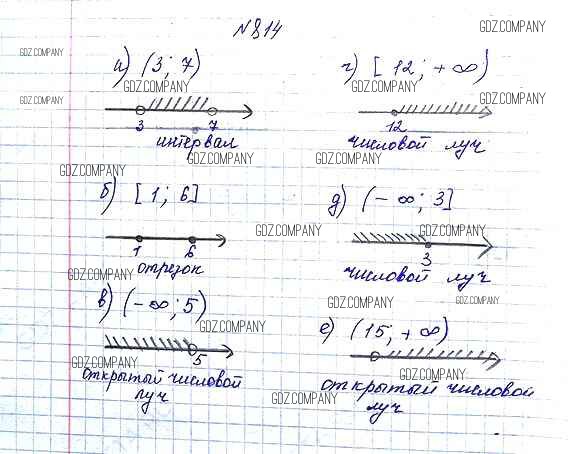 №814
GDZ.COMPANY
GDZ.COMPANY
а) (3; 7)
GDZ.COMPANY
GDZ.COMPANY
3 7
интервал
GDZ.COMPANY
GDZ.COMPANY
б) [1; 6]
1 6
отрезок
GDZ.COMPANY
в) (-∞; 5)
GDZ.COMPANY
5
GDZ.COMPANY
открытый числовой
луч
GDZ.COMPANY
г) [12; +∞)
GDZ.COMPANY
GDZ.COMPANY
12
числовой луч
GDZ.COMPANY
д) (-∞; 3]
GDZ.COMPANY
GDZ.COMPANY
3
числовой луч
GDZ.COMPANY
GDZ.COMPANY
е) (15, +∞)
GDZ.COMPANY
открытый числовой
луч
GDZ.COMPANY